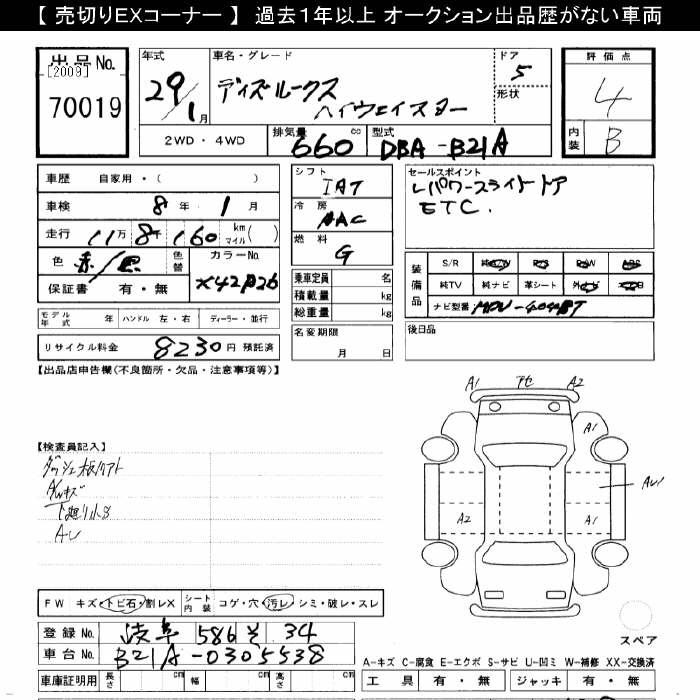 【 売切りEXコーナー 】 過去1年以上 オークション出品歴がない車両
出品No.
[2009]
70019
年式 29/1月
車名・グレード
ディズルークス
ハイウェイスター
ドア 5
形状
評価点
4
内装 B
2WD・4WD
排気量 660 cc
型式 DBA-B21A
車歴 自家用・( )
車検 8年 1月
走行 11万 8千 160 km マイル( )
色 赤/黒 色替 カラーNo. X42P26
保証書 有・無
シフト IAT
冷房 AAC
燃料 G
乗車定員 名
積載量 kg
総重量 kg
セールスポイント
Lパワースライドドア
ETC.
装備品
S/R 純AW P/S P/W ABS
純TV 純ナビ 革シート
ナビ型番
モデル年式 年 ハンドル 左・右 ディーラー・並行
名変期限 月 日
後日品
リサイクル料金 8230円 預託済
【出品店申告欄(不良箇所・欠品・注意事項等)】
A1 A2
A1
【検査員記入】
A/Wキズ
A2 A1
下廻り小S
FW キズ・トビ石・割レX シート内装 コゲ・穴・汚レ・シミ・破レ・スレ
登録No. 岐阜 586 そ 34
車台No. B21A-0305538
スペア
A-キズ C-腐食 E-エクボ S-サビ U-凹ミ W-補修 XX-交換済
車庫証明用 長さ cm 幅 cm 高さ cm
工具 有・無 ジャッキ 有・無